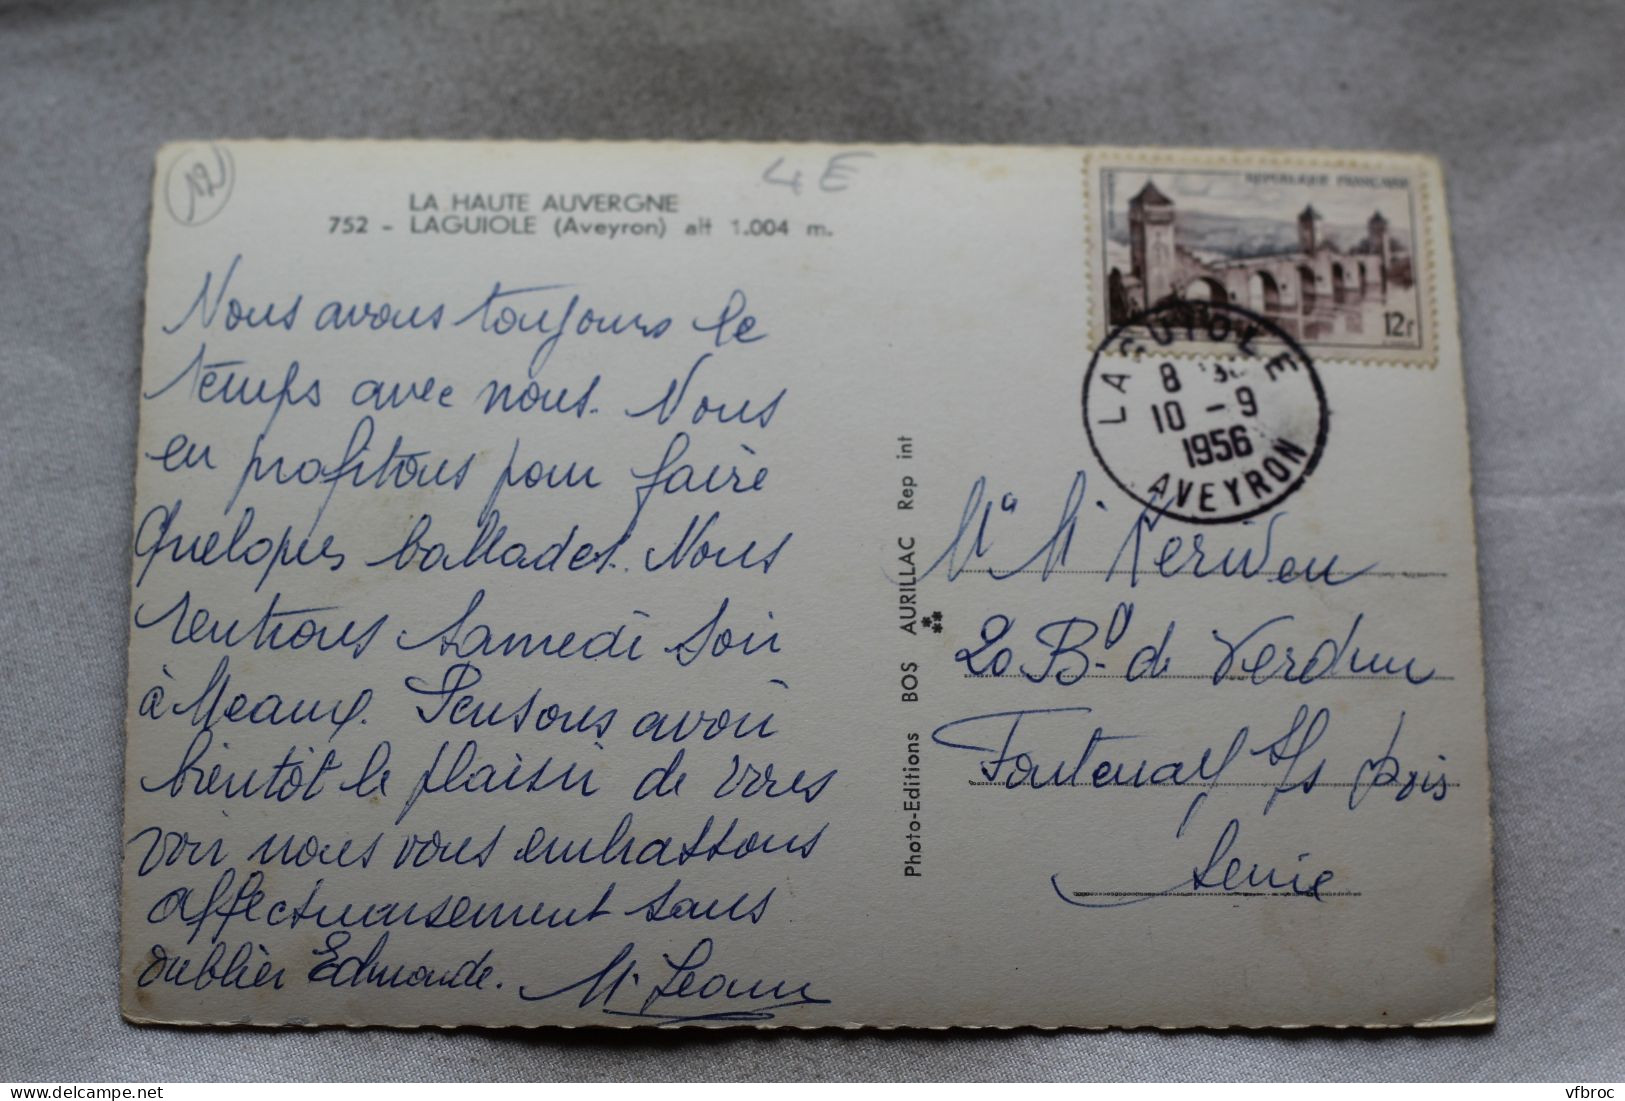 12
4E
LA HAUTE AUVERGNE
752 - LAGUIOLE (Aveyron) alt 1.004 m.
Nous avons toujours le
temps avec nous. Nous
en profitons pour faire
quelques ballades. Nous
rentrons samedi soir
à Meaux. Pensons avoir
bientôt le plaisir de vous
voir nous vous embrassons
affectueusement sans
oublier Edmonde. M. Jeanne
Photo-Editions BOS AURILLAC Rep int
REPUBLIQUE FRANÇAISE
12f
LAGUIOLE
8
10 - 9
1956
AVEYRON
20 Bd de Verdun
Fontenay s/s bois
Seine
vfbroc